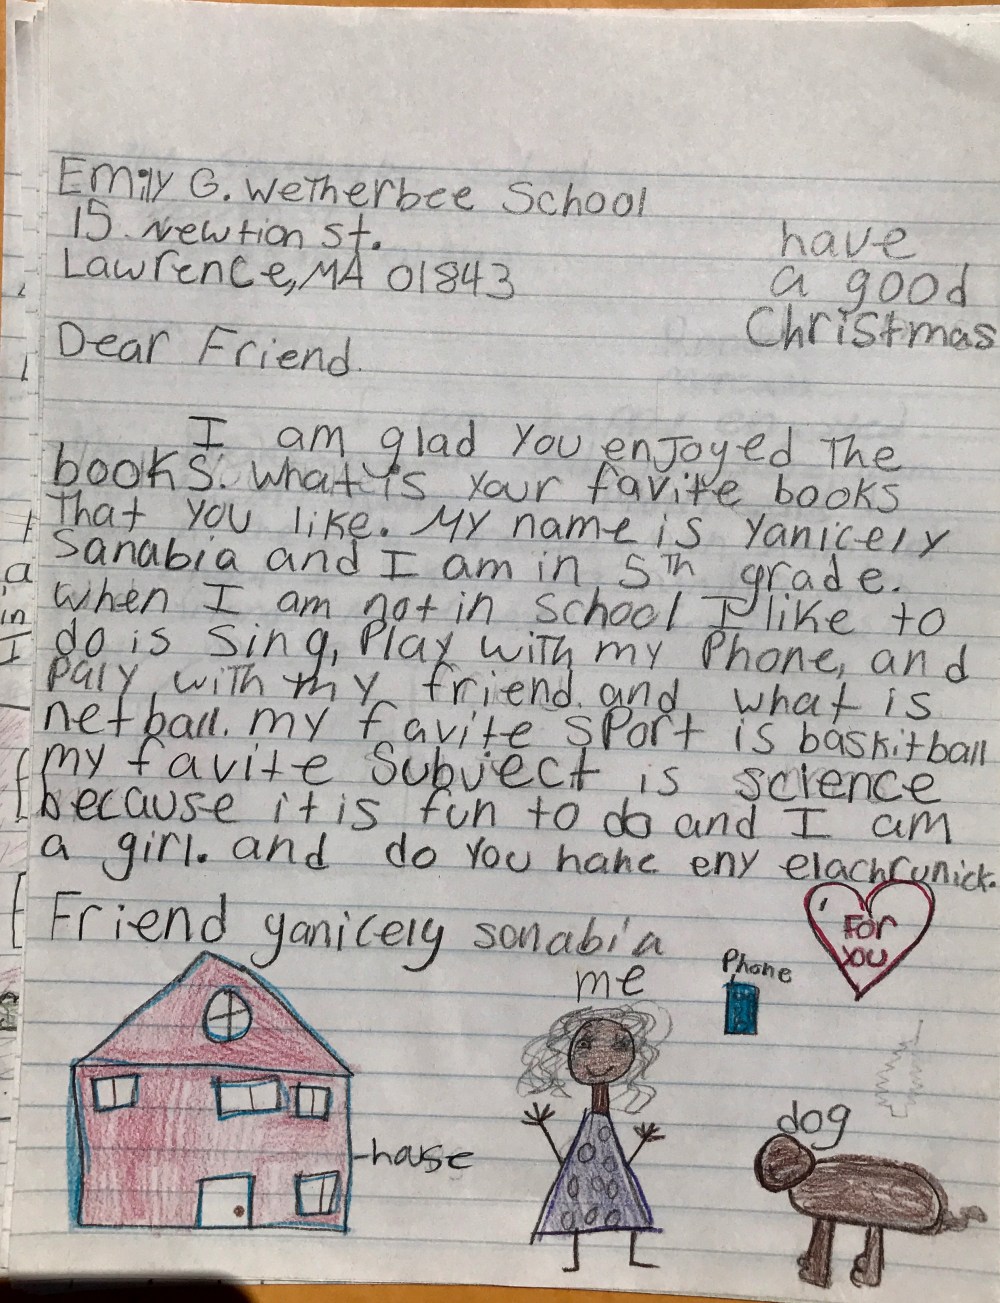 Emily G. Wetherbee School
15. Newtion st.
Lawrence, MA 01843
have
a good
Christmas
Dear Friend.
I am glad you enjoyed The
books. what is your favite books
That you like. My name is yanicely
Sanabia and I am in 5th grade.
when I am not in school I like to
do is sing, Play with my Phone, and
Paly with my friend. and what is
netball. my favite sport is baskitball
my favite Subject is science
because it is fun to do and I am
a girl. and do you hahe eny elachrunick.
Friend yanicely sonabia
For
you
me
Phone
dog
house